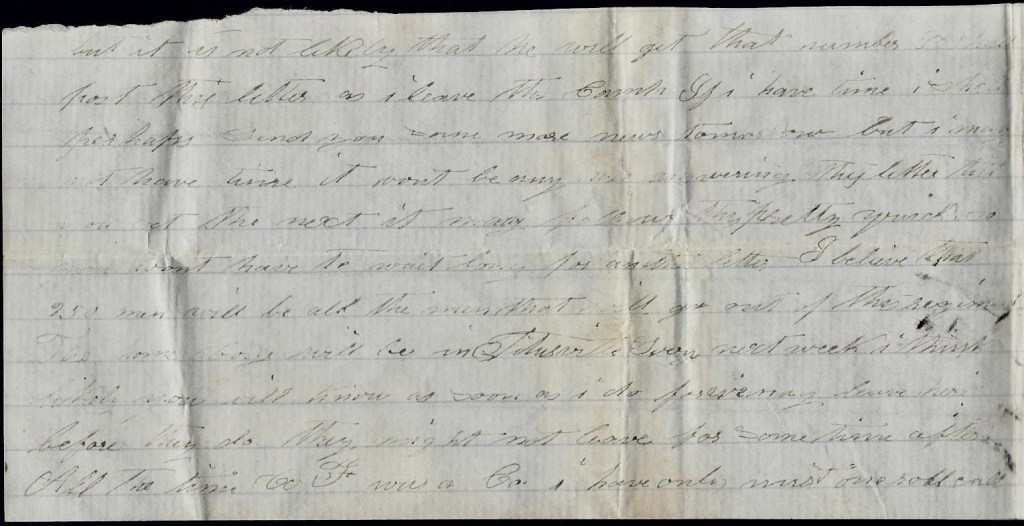 but it is not likely that he will get that number
post this letter as i leave the Camp If i have time i shall
perhaps send you some more news tomorrow but i may
not have time it wont be any use answering this letter till
you get the next it may follow this pretty quick so
you wont have to wait long for another letter I believe that
250 men will be all the men that will go out of this regim
The home boys will be in Titusville next week i think
likely you will know as soon as i do for we may leave here
before they do they might not leave for some time after
All the time Co F was a Co i have only mist one roll call